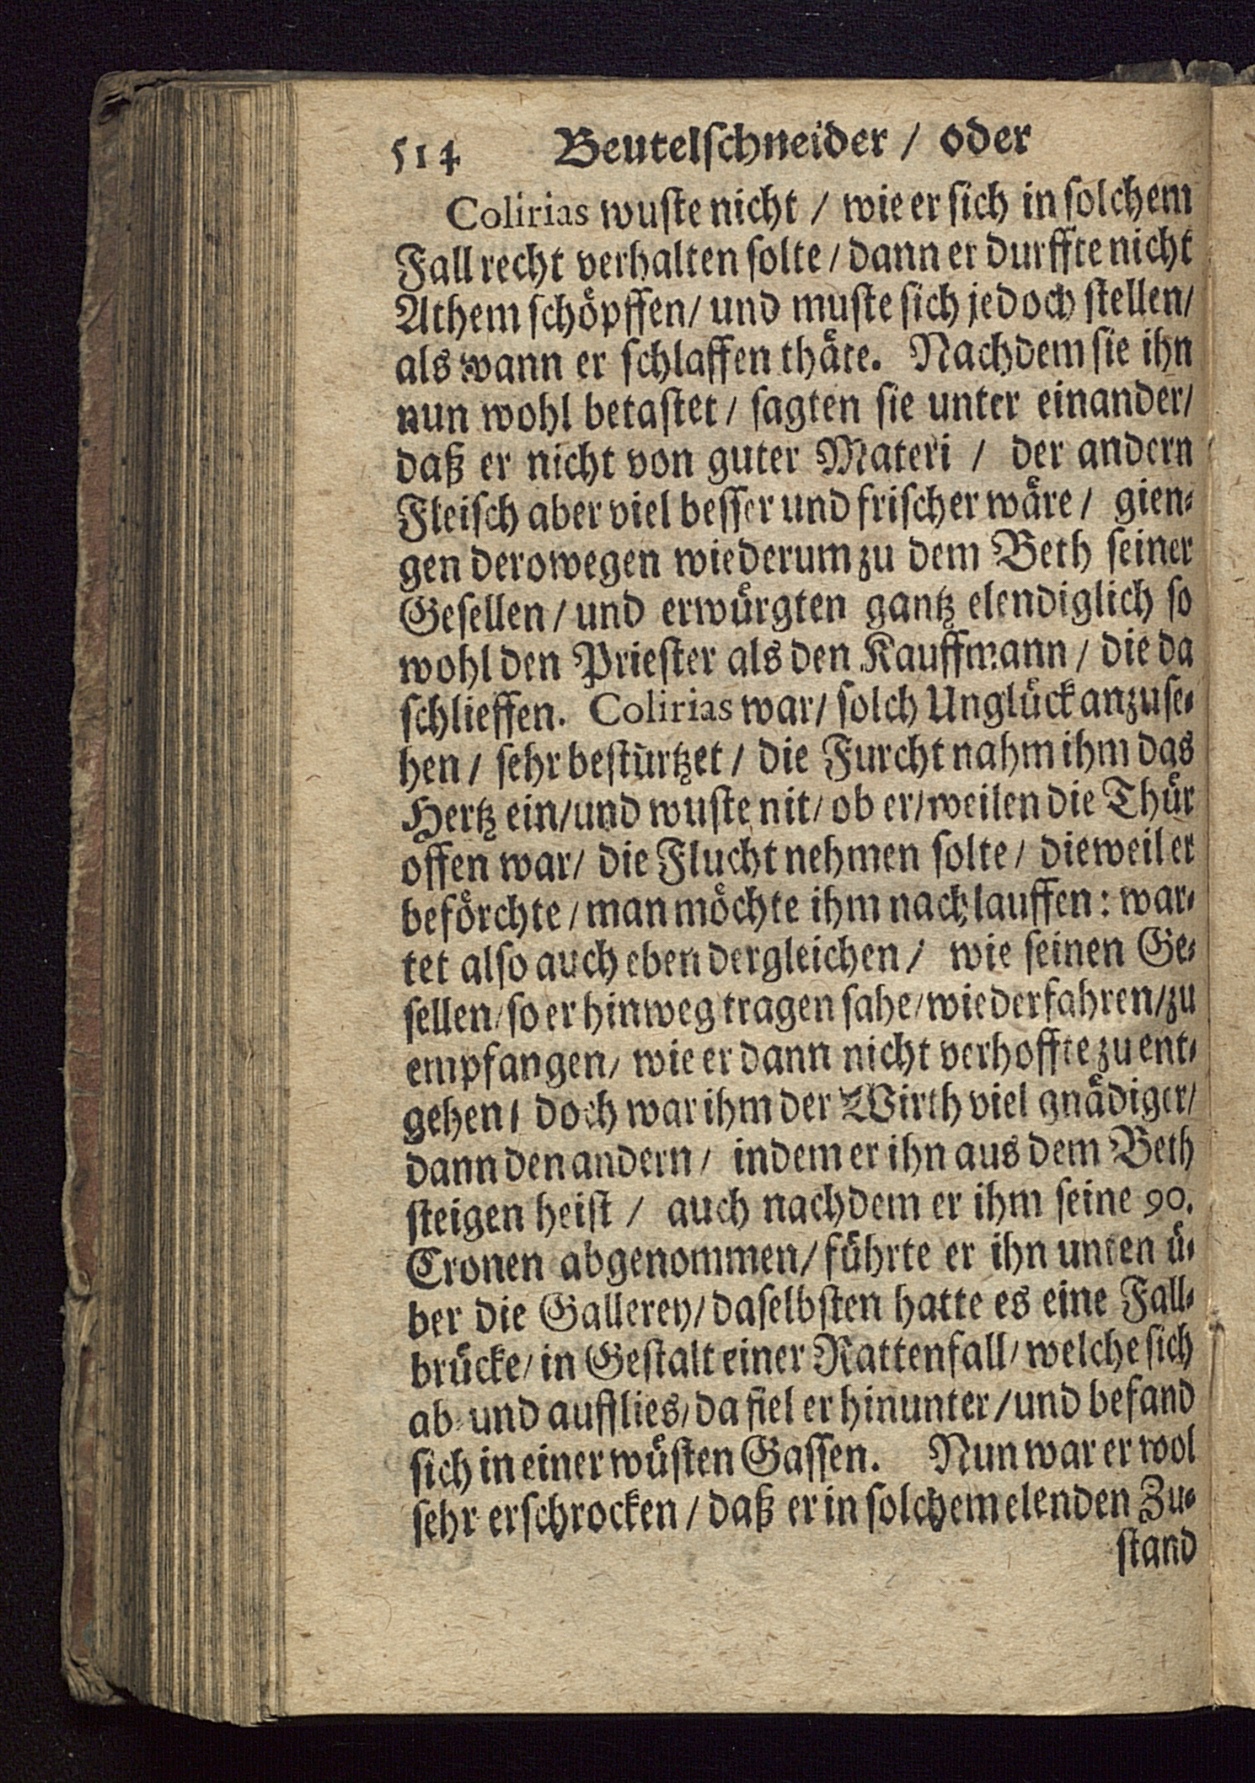 514 Beutelschneider / oder
Colirias wuste nicht / wie er sich in solchem
Fall recht verhalten solte / dann er durffte nicht
Athem schöpffen / und muste sich jedoch stellen /
als wann er schlaffen thäte. Nachdem sie ihn
nun wohl betastet / sagten sie unter einander /
daß er nicht von guter Materi / der andern
Fleisch aber viel besser und frischer wäre / gien-
gen derowegen wiederum zu dem Beth seiner
Gesellen / und erwürgten gantz elendiglich so
wohl den Priester als den Kauffmann / die da
schlieffen. Colirias war / solch Unglück anzuse-
hen / sehr bestürtzet / die Furcht nahm ihm das
Hertz ein / und wuste nit / ob er / weilen die Thür
offen war / die Flucht nehmen solte / dieweil er
beförchte / man möchte ihm nach lauffen : war-
tet also auch eben dergleichen / wie seinen Ge-
sellen / so er hinweg tragen sahe / wiederfahren / zu
empfangen / wie er dann nicht verhoffte zu ent-
gehen / doch war ihm der Wirth viel gnädiger /
dann den andern / indem er ihn aus dem Beth
steigen heist / auch nachdem er ihm seine 90.
Cronen abgenommen / führte er ihn unten ü-
ber die Gallerey / daselbsten hatte es eine Fall-
brücke / in Gestalt einer Rattenfall / welche sich
ab- und aufflies / da fiel er hinunter / und befand
sich in einer wüsten Gassen. Nun war er wol
sehr erschrocken / daß er in solchem elenden Zu-
stand